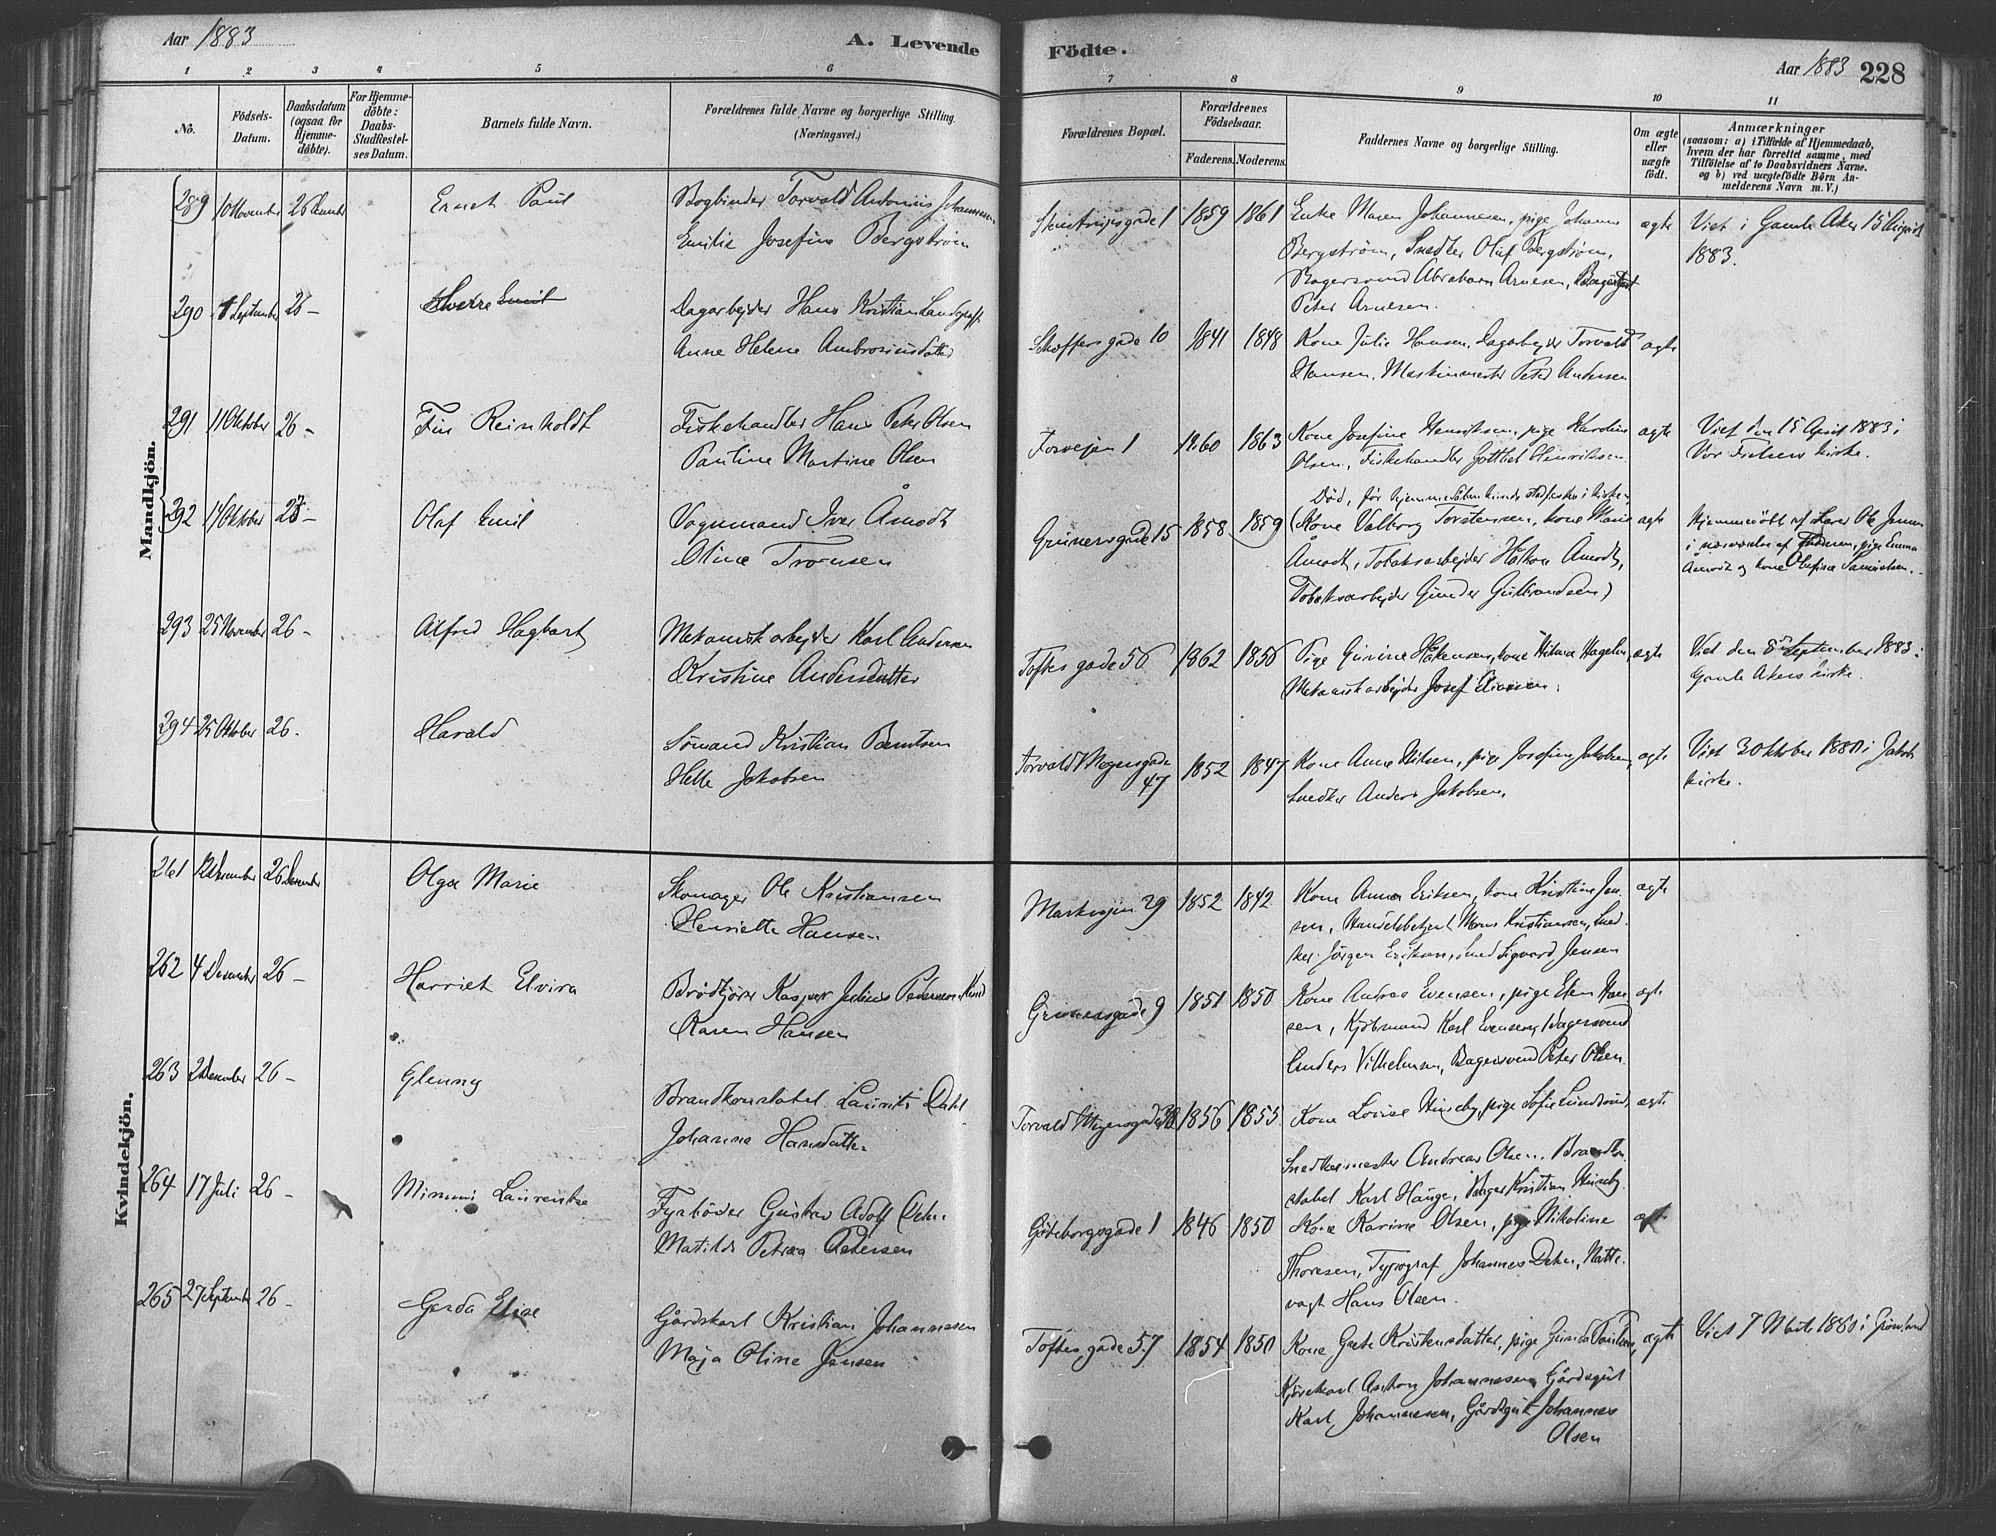 Aar 1883
A. Levende
Födte.
Aar 1883
228
1 2 3 4 5 6 7 8 9 10 11
No.
Födsels-Datum.
Daabsdatum (ogsaa for Hjemme-döbte).
For Hjemme-döbte: Daabs-Stadfæstelses Datum.
Barnets fulde Navn.
Forældrenes fulde Navne og borgerlige Stilling. (Næringsvei.)
Forældrenes Bopæl.
Forældrenes Födselsaar.
Faderens. Moderens.
Faddernes Navne og borgerlige Stilling.
Om ægte eller uægte födt.
Anmærkninger
(saasom: a) i Tilfælde af Hjemmedaab,
hvem der har forrettet samme, med
Tilföielse af to Daabsvidners Navne.
og b) ved uægtefödte Börn An-
melderens Navn m. V.)
Mandkjön.
289 10 November 26 Ernst Paul
Bogbinder Torvald Antonius Johannesen
Emilie Josefine Bergström
1859 1861
Enke Maren Johannesen, pige Johanne
Bergström, Snedker Olaf Bergström,
Bagersvend Abraham Arnesen,
Peter Arnesen.
ægte
Viet i Gamle Aker 15
1883.
290 September 26 – Sverre Emil
Dagarbejder Hans Kristian
Anne Helene Ambrosiusdatter
10 1841 1848
Kone Julie Hansen, Dagarbejder Torvald
Hansen, Maskinmester Peter Andersen
ægte
291 11 Oktober 26 – Fin Reinholdt
Fiskehandler Hans Peter Olsen
Pauline Martine Olsen
Torvejen 1 1860 1863
Kone Josefine Henriksen, pige Karoline
Olsen, Fiskehandler Gottlieb Henriksen.
ægte
Viet den 15 April 1883 i
Vor Frelsers kirke.
292 14 Oktober 26 – Olaf Emil
Vognmand Iver Åmodt
Oline Tronsen
Grünersgade 15 1858 1859
Död, før hjemmedåben kunde stadfestes i kirken
(Kone Valborg Torstensen, kone Marie
Åmodt, Tobaksarbejder Håkon Åmodt,
Tobaksarbejder Gunder Gulbrandsen)
ægte
Hjemmedöbt af Lærer Ole Jensen
i nærværelse af Faderen, pige Emma
Åmodt og kone Olefine Samuelsen.
293 25 November 26 – Alfred Hagbart
Mekanisk arbejder Karl Andersen
Kristine Andersdatter
Toftes gade 56 1862 1856
Pige Gurine Håkensen, kone Hilma Hagelin,
Mekanisk arbejder Josef
ægte
Viet den 8 September 1883 i
Gamle Akers kirke.
294 25 Oktober 26 – Harald
Sömand Kristian Berntsen
Helle Jakobsen
Torvald Meyersgade
47 1852 1847
Kone Anne Nilsen, pige Josefine Jakobsen,
Snedker Anders Jakobsen.
ægte
Viet 3 Oktober 1880 i Jakobs
kirke.
Kvindekjön.
261 12 December 26 December Olga Marie
Skomager Ole Kristiansen
Henriette Hansen
Markvejen 29 1852 1842
Kone Anna Eriksen, kone Kristine Jen-
sen, Handelsbetjent Mons Kristiansen, Sned-
ker Jörgen Eriksen, Smed Sigvard Jensen
ægte
262 4 December 26 – Harriet Elvira
Brödkjörer Kasper Julius Pedersen
Karen Hansen
Grünersgade 9 1851 1850
Kone Andrea Evensen, pige Han-
sen, Kjöbmand Karl Evensen, Bagersvend
Anders Vilhelmsen, Bagersvend Peter Olsen.
ægte
263 2 December 26 – Glenny
Brandkonstabel Laurits Dahl
Johanne Hansdatter
Torvald Meyersgade 1856 1855
Kone Louise Huseby, pige Sofie Lundsrud,
Snedkermester Andreas Olsen, Brandkon-
stabel Karl Hauge, Bager Kristian Huseby
ægte
264 17 Juli 26 – Mimmi Laurentse
Fyrböder Gustav Adolf Dehn.
Matilde Petrea Petersen
Göteborgsgade 1 1846 1850
Kone Karine Olsen, pige Nikoline
Thoresen, Typograf Johannes Dehn, Natte-
vagt Hans Olsen.
265 27 September 26 – Gerda Elise
Gårdskarl Kristian Johannesen
Maja Oline Jensen
Toftes gade 57 1854 1850
Kone Grete Kristensdatter, pige Gunda Paulsen,
Kjörekarl Anton Johannesen, Gårdsgut
Karl Johannesen, Gårdsgut Johannes
Olsen
ægte
Viet 7 1880 i Grönland